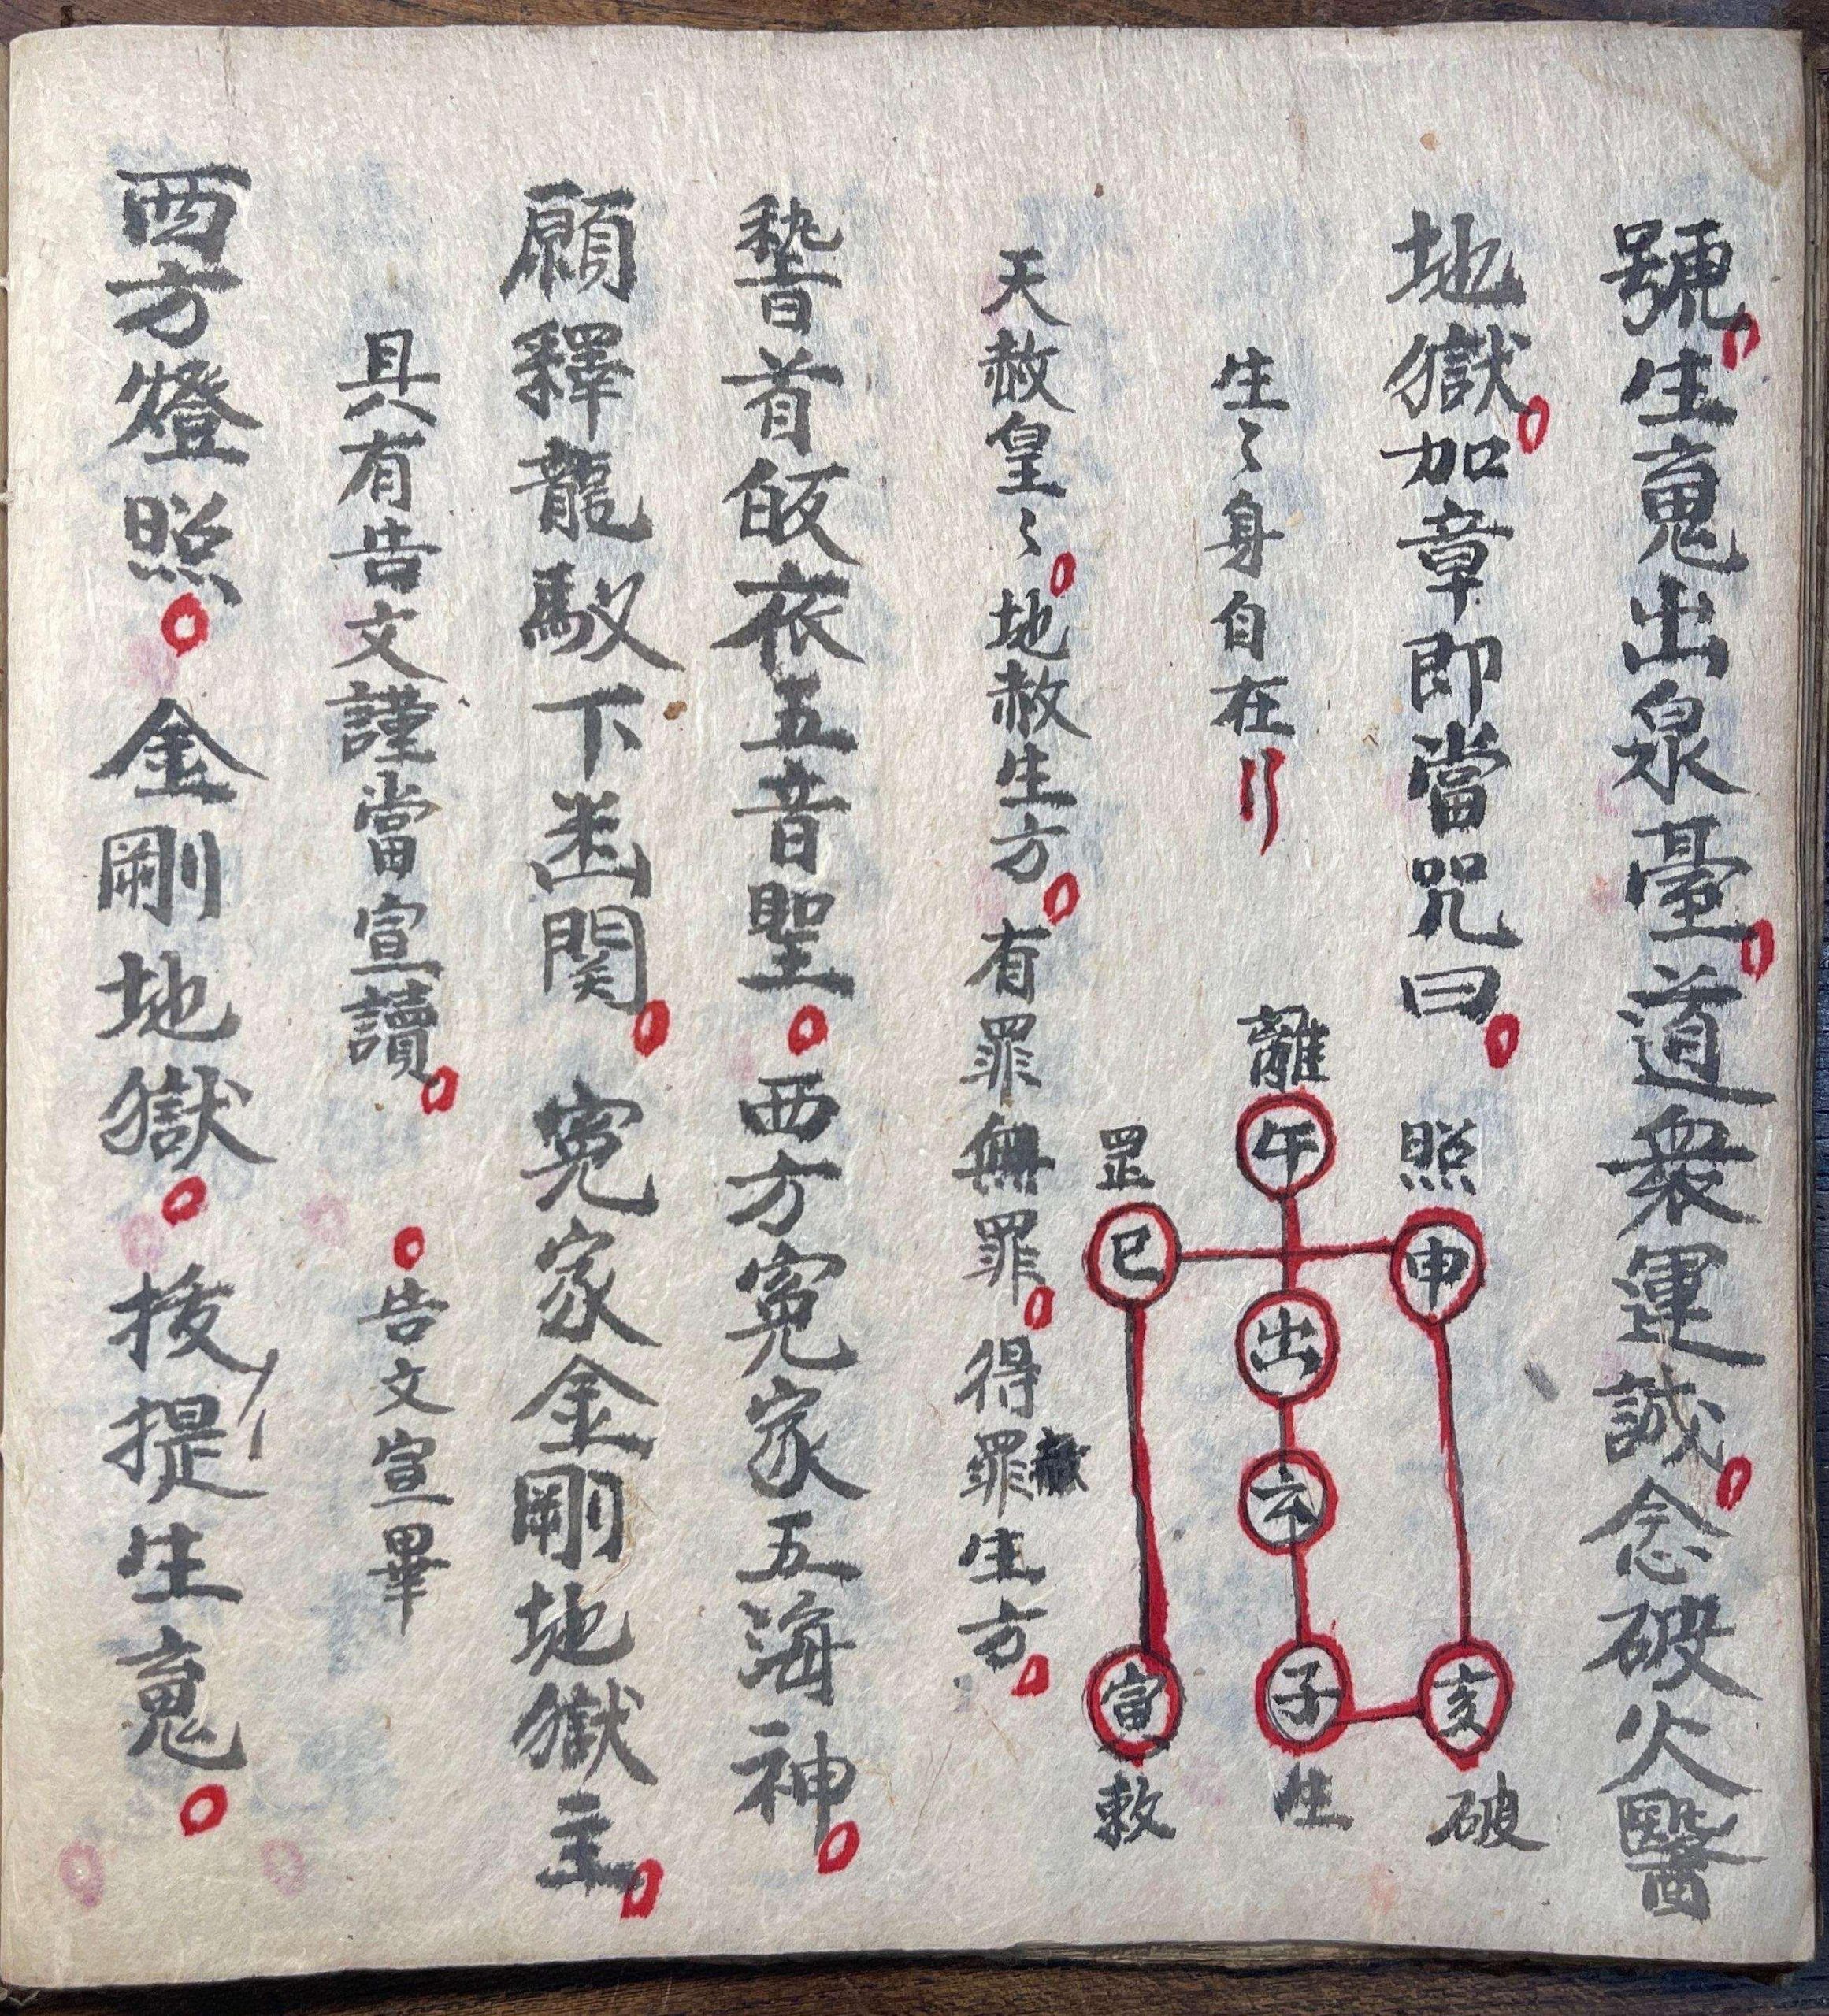 號生寃出泉臺道衆運誠念破火醫
地獄加章即當咒曰
生〻身自在
離
照
罡
午
巳
申
出
云
寅
子
亥
敕
生
破
天赦皇〻地赦生方有罪無罪得罪赦生方
稽首皈衣五音聖西方寃家五海神
願釋龍馭下函関寃家金剛地獄主
具有告文謹當宣讀告文宣畢
西方燈照金剛地獄提生寃